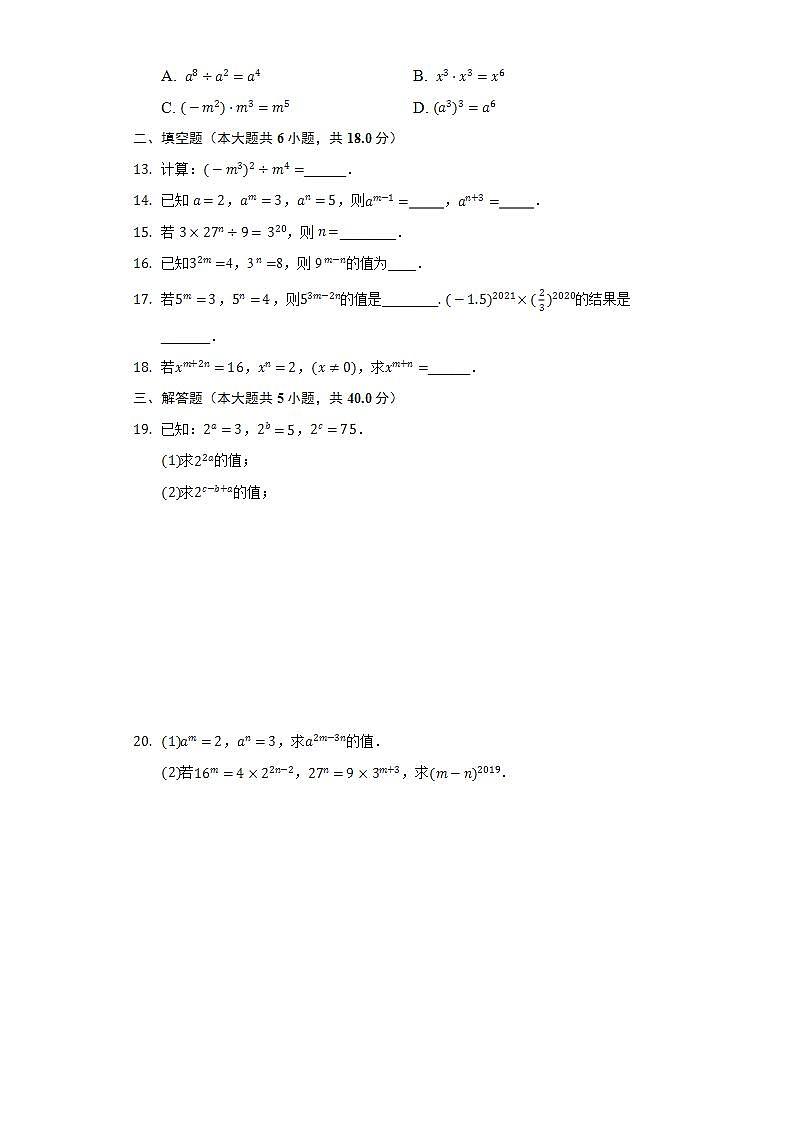 A. a⁸ ÷ a² = a⁴ B. x³ · x³ = x⁶
C. (−m²) · m³ = m⁵ D. (a³)³ = a⁶
二、填空题（本大题共 6 小题，共 18.0 分）
13. 计算：(−m³)² ÷ m⁴ =______．
14. 已知 a = 2，aᵐ = 3，aⁿ = 5，则aᵐ⁻¹ =_____，aⁿ⁺³ =_____．
15. 若 3 × 27ⁿ ÷ 9 = 3²⁰，则 n =________．
16. 已知3²ᵐ =4，3ⁿ =8，则 9ᵐ⁻ⁿ的值为____．
17. 若5ᵐ = 3，5ⁿ = 4，则5³ᵐ⁻²ⁿ的值是________. (−1.5)²⁰²¹ × (2/3)²⁰²⁰的结果是
_______．
18. 若xᵐ⁺²ⁿ = 16，xⁿ = 2，(x ≠ 0)，求xᵐ⁺ⁿ =______．
三、解答题（本大题共 5 小题，共 40.0 分）
19. 已知：2ᵃ = 3，2ᵇ = 5，2ᶜ = 75．
(1)求2²ᵃ的值；
(2)求2ᶜ⁻ᵇ⁺ᵃ的值；
20. (1)aᵐ = 2，aⁿ = 3，求a²ᵐ⁻³ⁿ的值．
(2)若16ᵐ = 4 × 2²ⁿ⁻²，27ⁿ = 9 × 3ᵐ⁺³，求(m − n)²⁰¹⁹．